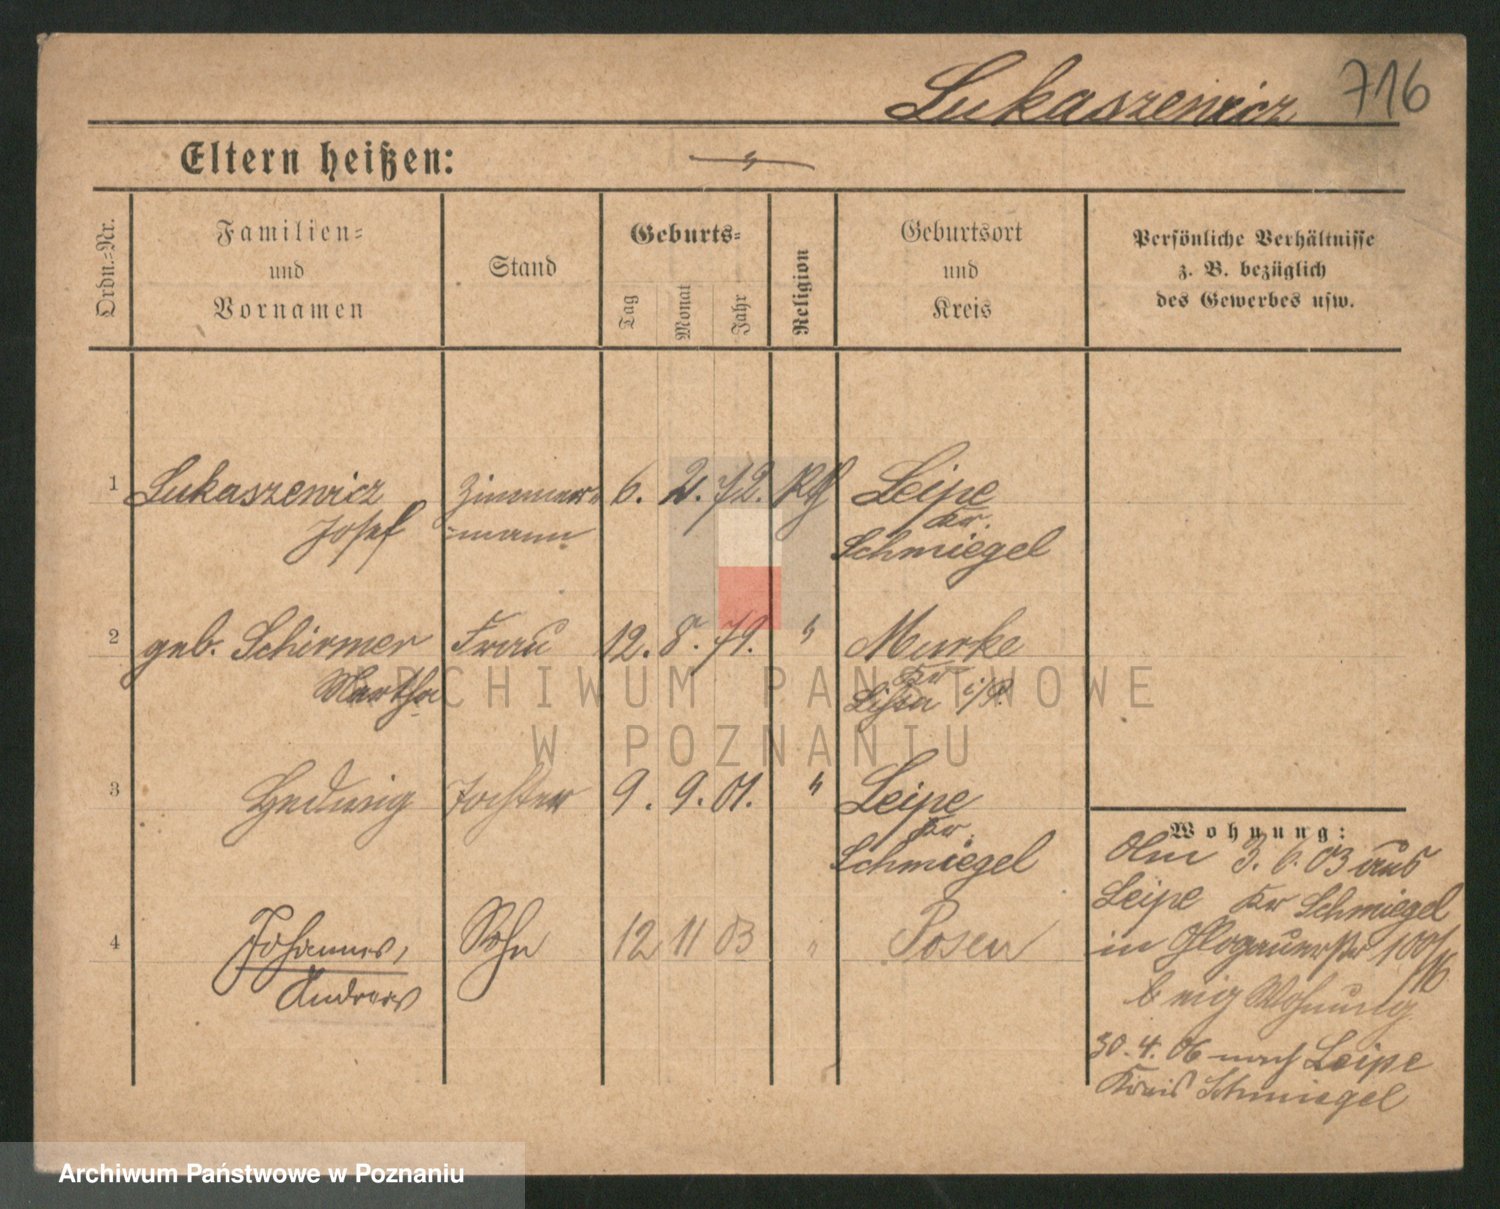 Lukaszewicz 716
Eltern heißen:
Ordn.=Nr.
Familien=
und
Vornamen
Stand
Geburts=
Tag
Monat
Jahr
Religion
Geburtsort
und
Kreis
Persönliche Verhältnisse
z. B. bezüglich
des Gewerbes usw.
1 Lukaszewicz Zimmer= 6. 2. 72. Leipe
Josef =mann Kr.
Schmiegel
2 geb. Schirmer Frau 12. 8. 79. " Murke
Martha Kr
Lissa i/P.
3 Hedwig Tochter 9. 9. 01. " Leipe
Kr.
Schmiegel
4 Johannes, Sohn 12 11 03 " Posen
Andreas
Wohnung:
3. 6. 03 aus
Leipe Kr Schmiegel
in Glogauerstr 100/
b eig Wohnung
30. 4. 06 nach Leipe
Kreis Schmiegel
ARCHIWUM PAŃSTWOWE
W POZNANIU
Archiwum Państwowe w Poznaniu